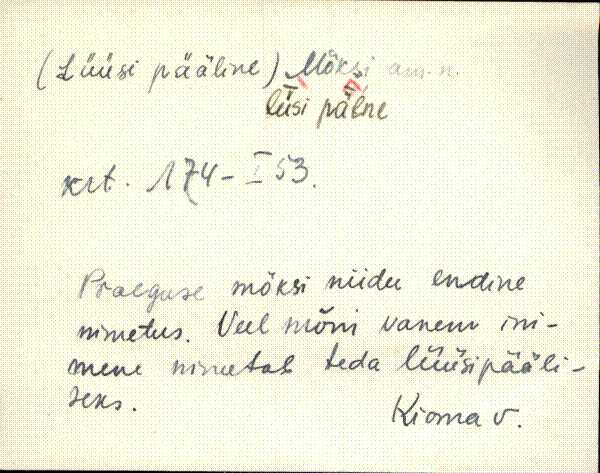 (Lüüsi pääline) Mõksi am. n.
lüsi päĺne
krt. 174 - I 53.
Praeguse mõksi niidu endine
nimetus. Veel mõni vanem ini-
mene nimetab teda lüüsipääli-
seks.
Kioma v.